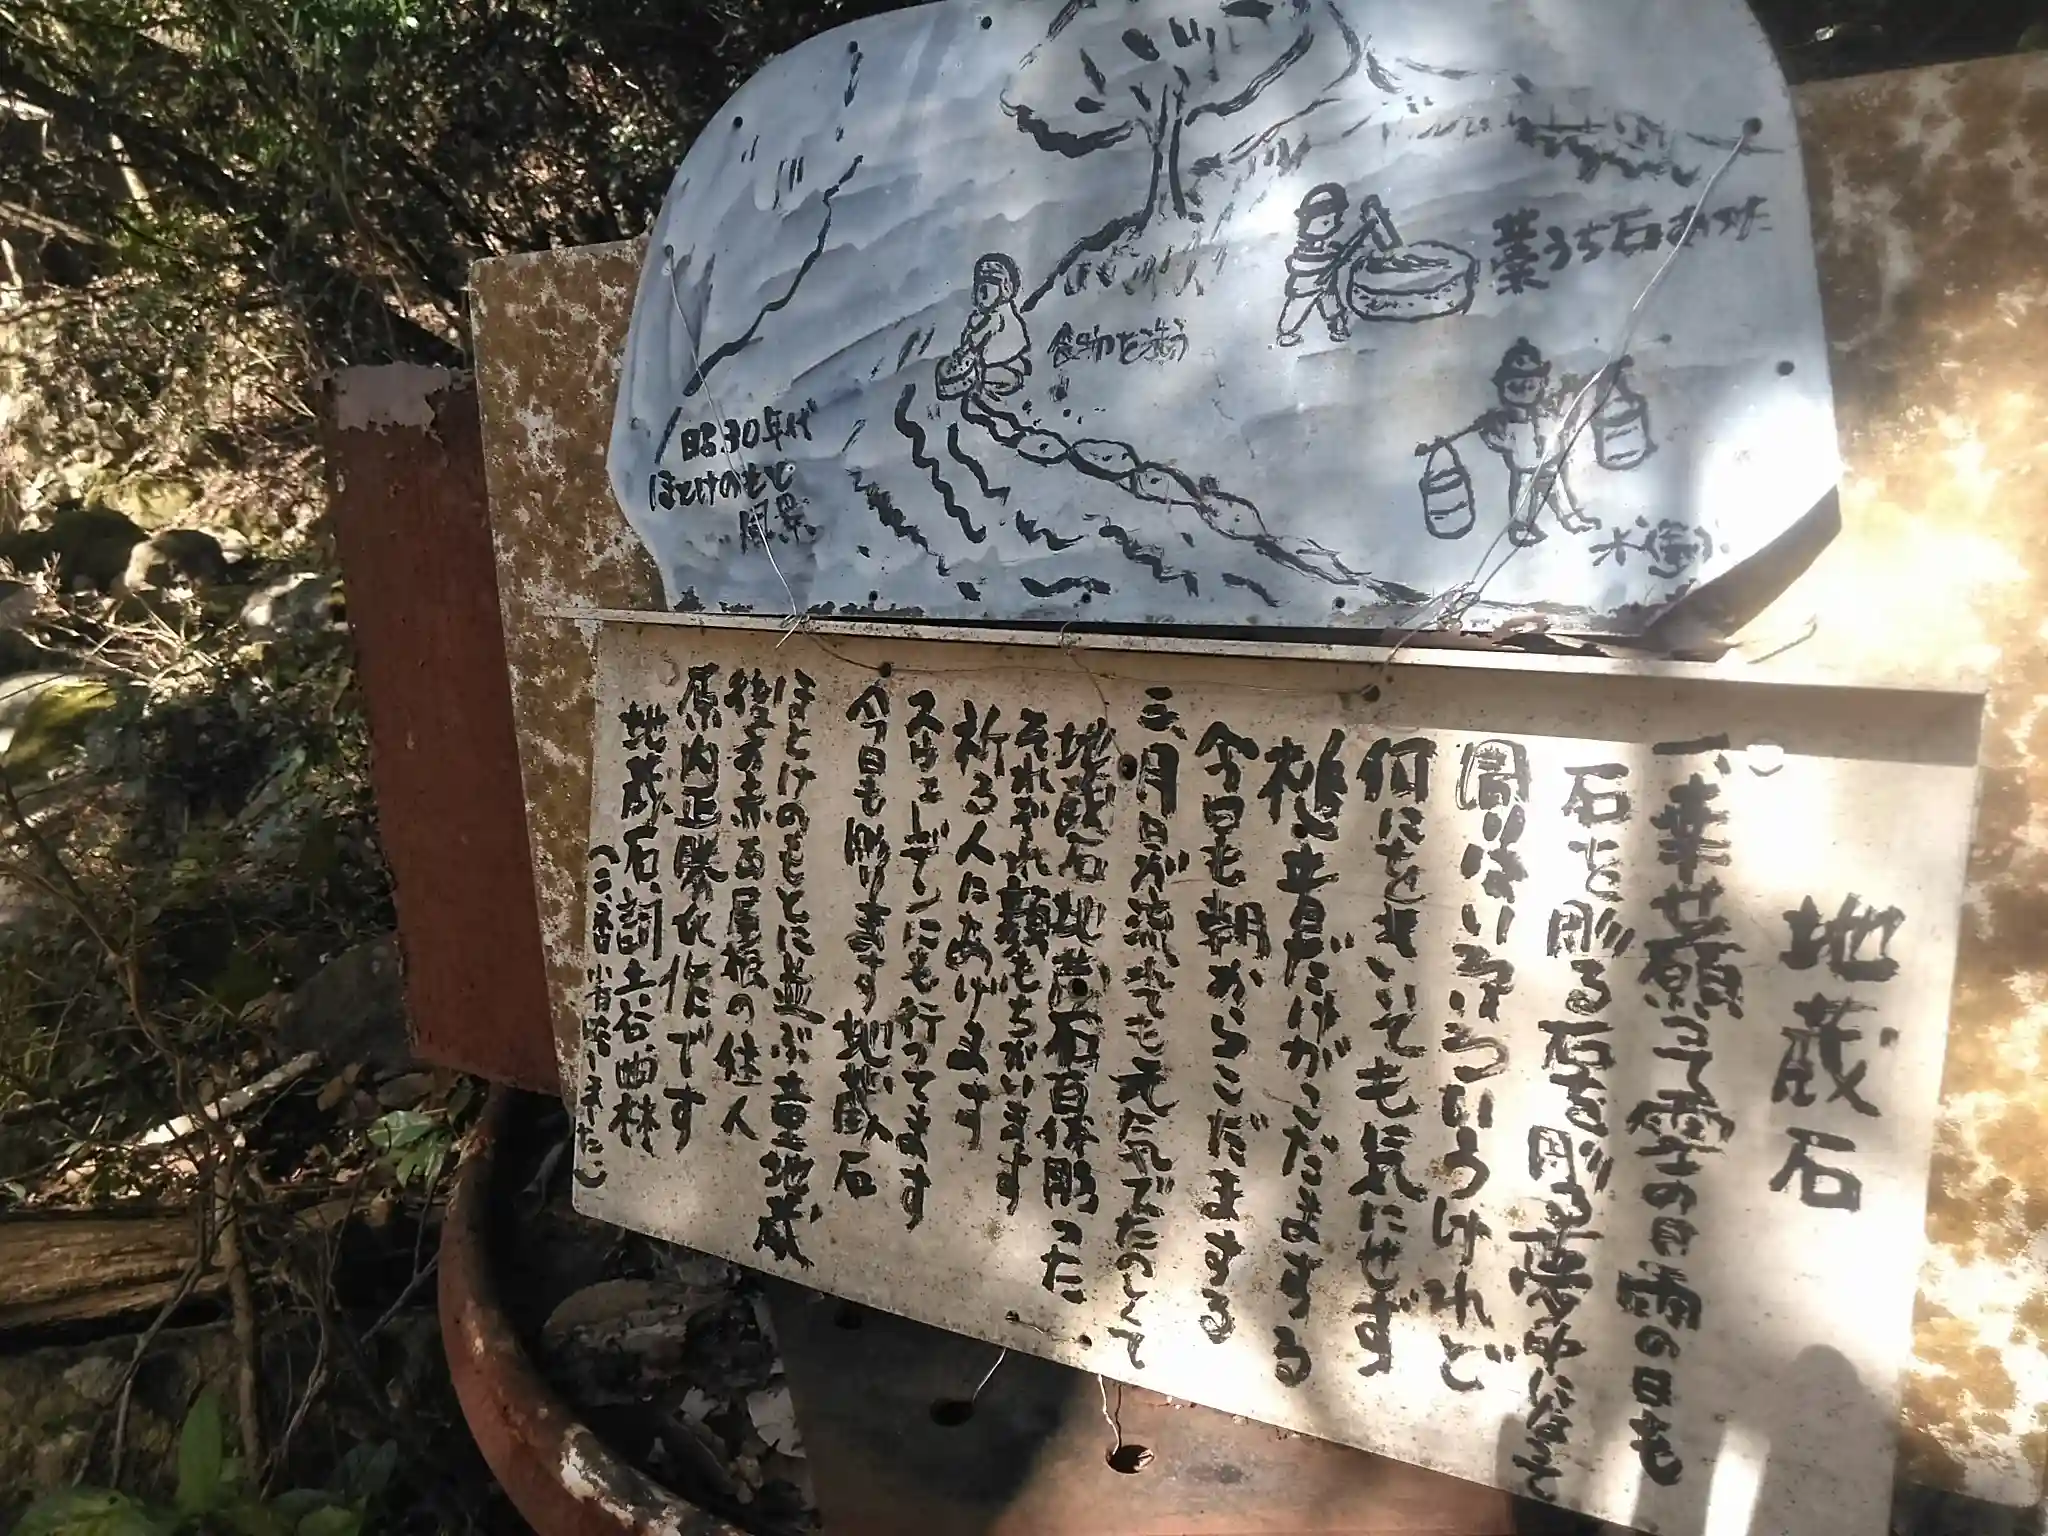 藁うち石あった
食物を洗う
水運び
昭30年代
ほとけのもと
風景
地蔵石
一、幸せ願って雪の日雨の日も
石を彫る石を彫る夢中になって
周りはいろいろいうけれど
何にをきいても気にせず
槌音だけがこだまする
今日も朝からこだまする
三、月日が流れても元気でたのしくて
地蔵石地蔵石百体彫った
それぞれ顔もちがいます
祈る人にあげます
スウェーデンにも行ってます
今日も彫ります地蔵石
ほとけのもとに並ぶ童地蔵
後方赤い屋根の住人
原内正勝化作です
地蔵石、詞土谷幽林
(二番省略しました)